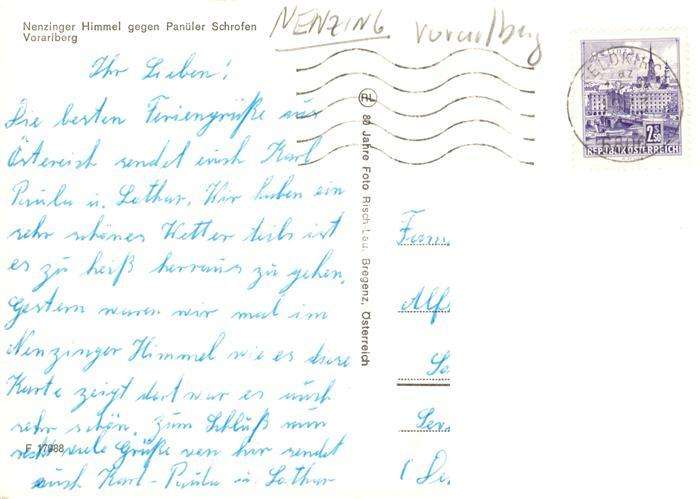 Nenzinger Himmel gegen Panüler Schrofen
Vorarlberg
NENZING Vorarlberg
Ihr Lieben!
Die besten Feriengrüße aus
Östereich sendet euch Karl
Paula u. Lothar. Wir haben ein
sehr schönes Wetter teils ist
es zu heiß herraus zu gehen.
Gestern waren wir mal im
Nenzinger Himmel wie es diese
Karte zeigt dort war es auch
sehr schön. Zum Schluß nun
viele Grüße von hir sendet
euch Karl-Paula u. Lothar
F 17988
RL
80 Jahre Foto Risch-Lau, Bregenz, Österreich
FELDKIRCH
2.50
REPUBLIK ÖSTERREICH
Fam.
Alf